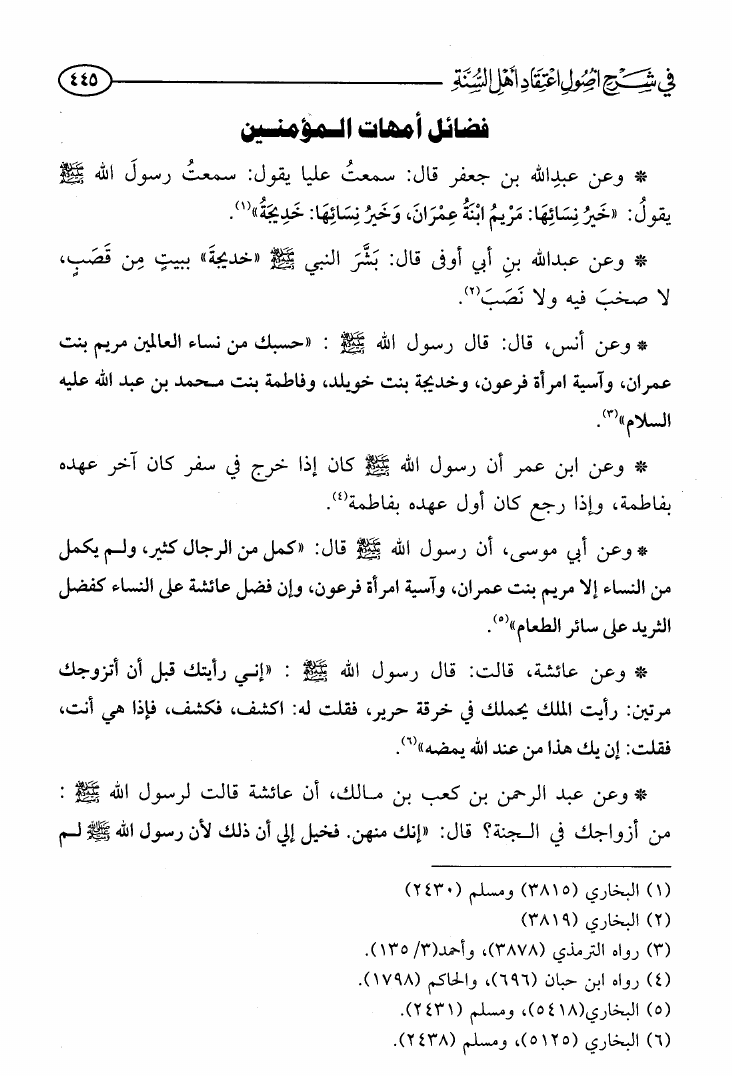 في شرح أصول اعتقاد أهل السنة
٤٤٥
فضائل أمهات المؤمنين
* وعن عبدِالله بن جعفر قال: سمعتُ عليا يقول: سمعتُ رسولَ الله ﷺ
يقولُ: «خَيرُ نِسَائِهَا: مَرْيَمُ ابْنَةُ عِمْرَانَ، وَخَيرُ نِسَائِهَا: خَدِيجَةُ»(١).
* وعن عبدالله بنِ أبي أوفى قال: بَشَّرَ النبي ﷺ «خديجةَ» ببيتٍ مِن قَصَبٍ،
لا صخبَ فيه ولا نَصَبَ(٢).
* وعن أنس، قال: قال رسول الله ﷺ : «حسبك من نساء العالمين مريم بنت
عمران، وآسية امرأة فرعون، وخديجة بنت خويلد، وفاطمة بنت محمد بن عبد الله عليه
السلام»(٣).
* وعن ابن عمر أن رسول الله ﷺ كان إذا خرج في سفر كان آخر عهده
بفاطمة، وإذا رجع كان أول عهده بفاطمة(٤).
* وعن أبي موسى، أن رسول الله ﷺ قال: «كمل من الرجال كثير، ولم يكمل
من النساء إلا مريم بنت عمران، وآسية امرأة فرعون، وإن فضل عائشة على النساء كفضل
الثريد على سائر الطعام»(٥).
* وعن عائشة، قالت: قال رسول الله ﷺ : «إني رأيتك قبل أن أتزوجك
مرتين: رأيت الملك يحملك في خرقة حرير، فقلت له: اكشف، فكشف، فإذا هي أنت،
فقلت: إن يك هذا من عند الله يمضه»(٦).
* وعن عبد الرحمن بن كعب بن مالك، أن عائشة قالت لرسول الله ﷺ :
من أزواجك في الجنة؟ قال: «إنك منهن. فخيل إلي أن ذلك لأن رسول الله ﷺ لم
(١) البخاري (٣٨١٥) ومسلم (٢٤٣٠)
(٢) البخاري (٣٨١٩)
(٣) رواه الترمذي (٣٨٧٨)، وأحمد(٣/ ١٣٥).
(٤) رواه ابن حبان (٦٩٦)، والحاكم (١٧٩٨).
(٥) البخاري(٥٤١٨)، ومسلم (٢٤٣١).
(٦) البخاري (٥١٢٥)، ومسلم (٢٤٣٨).